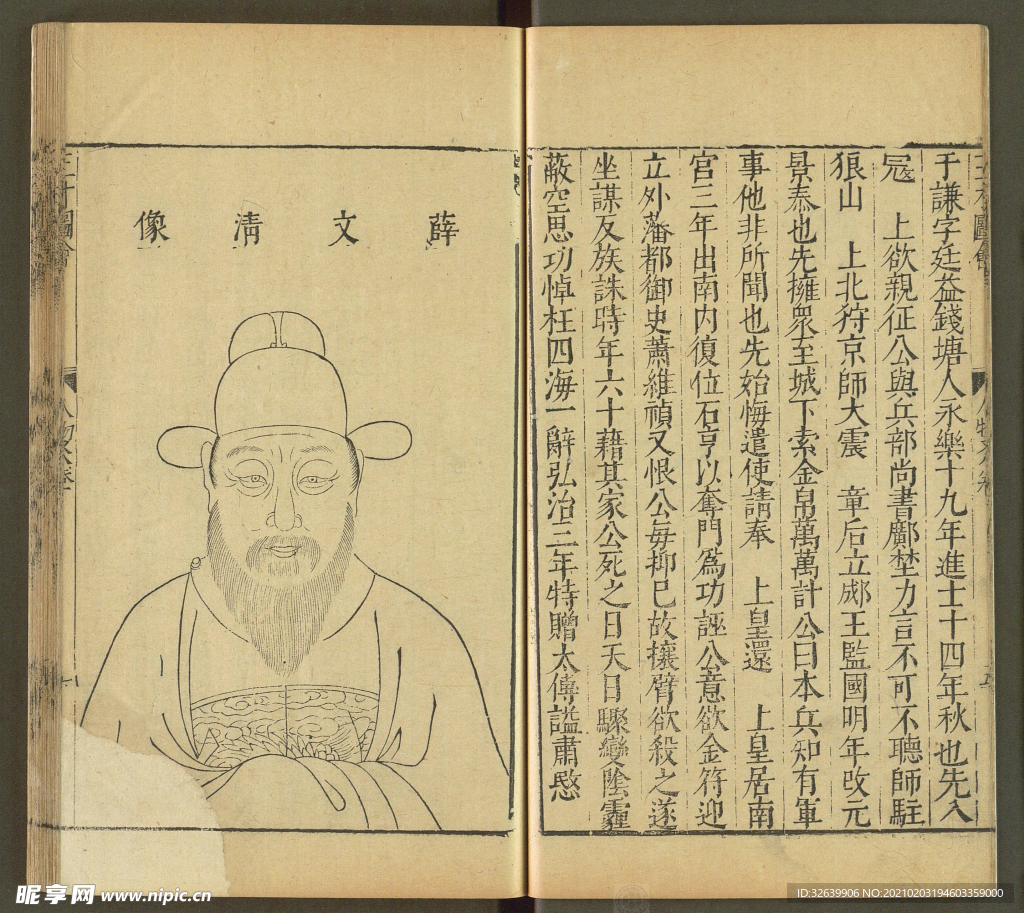 于謙字廷益錢塘人永樂十九年進士十四年秋也先入
冦　上欲親征公與兵部尚書鄺埜力言不可不聽師駐
狼山　上北狩京師大震　章后立郕王監國明年改元
景泰也先擁衆至城下索金帛萬萬計公曰本兵知有軍
事他非所聞也先始悔遣使請奉　上皇還　上皇居南
宮三年出南內復位石亨以奪門爲功誣公意欲金符迎
立外藩都御史蕭維禎又恨公每抑巳故攘臂欲殺之遂
坐謀反族誅時年六十藉其家公死之日天日驟變陰霾
蔽空思功悼枉四海一辭弘治三年特贈太傅謚肅愍
薛文清像
三才圖會
人物六卷
昵享网 www.nipic.cn
ID:32639906 NO:20210203194603359000